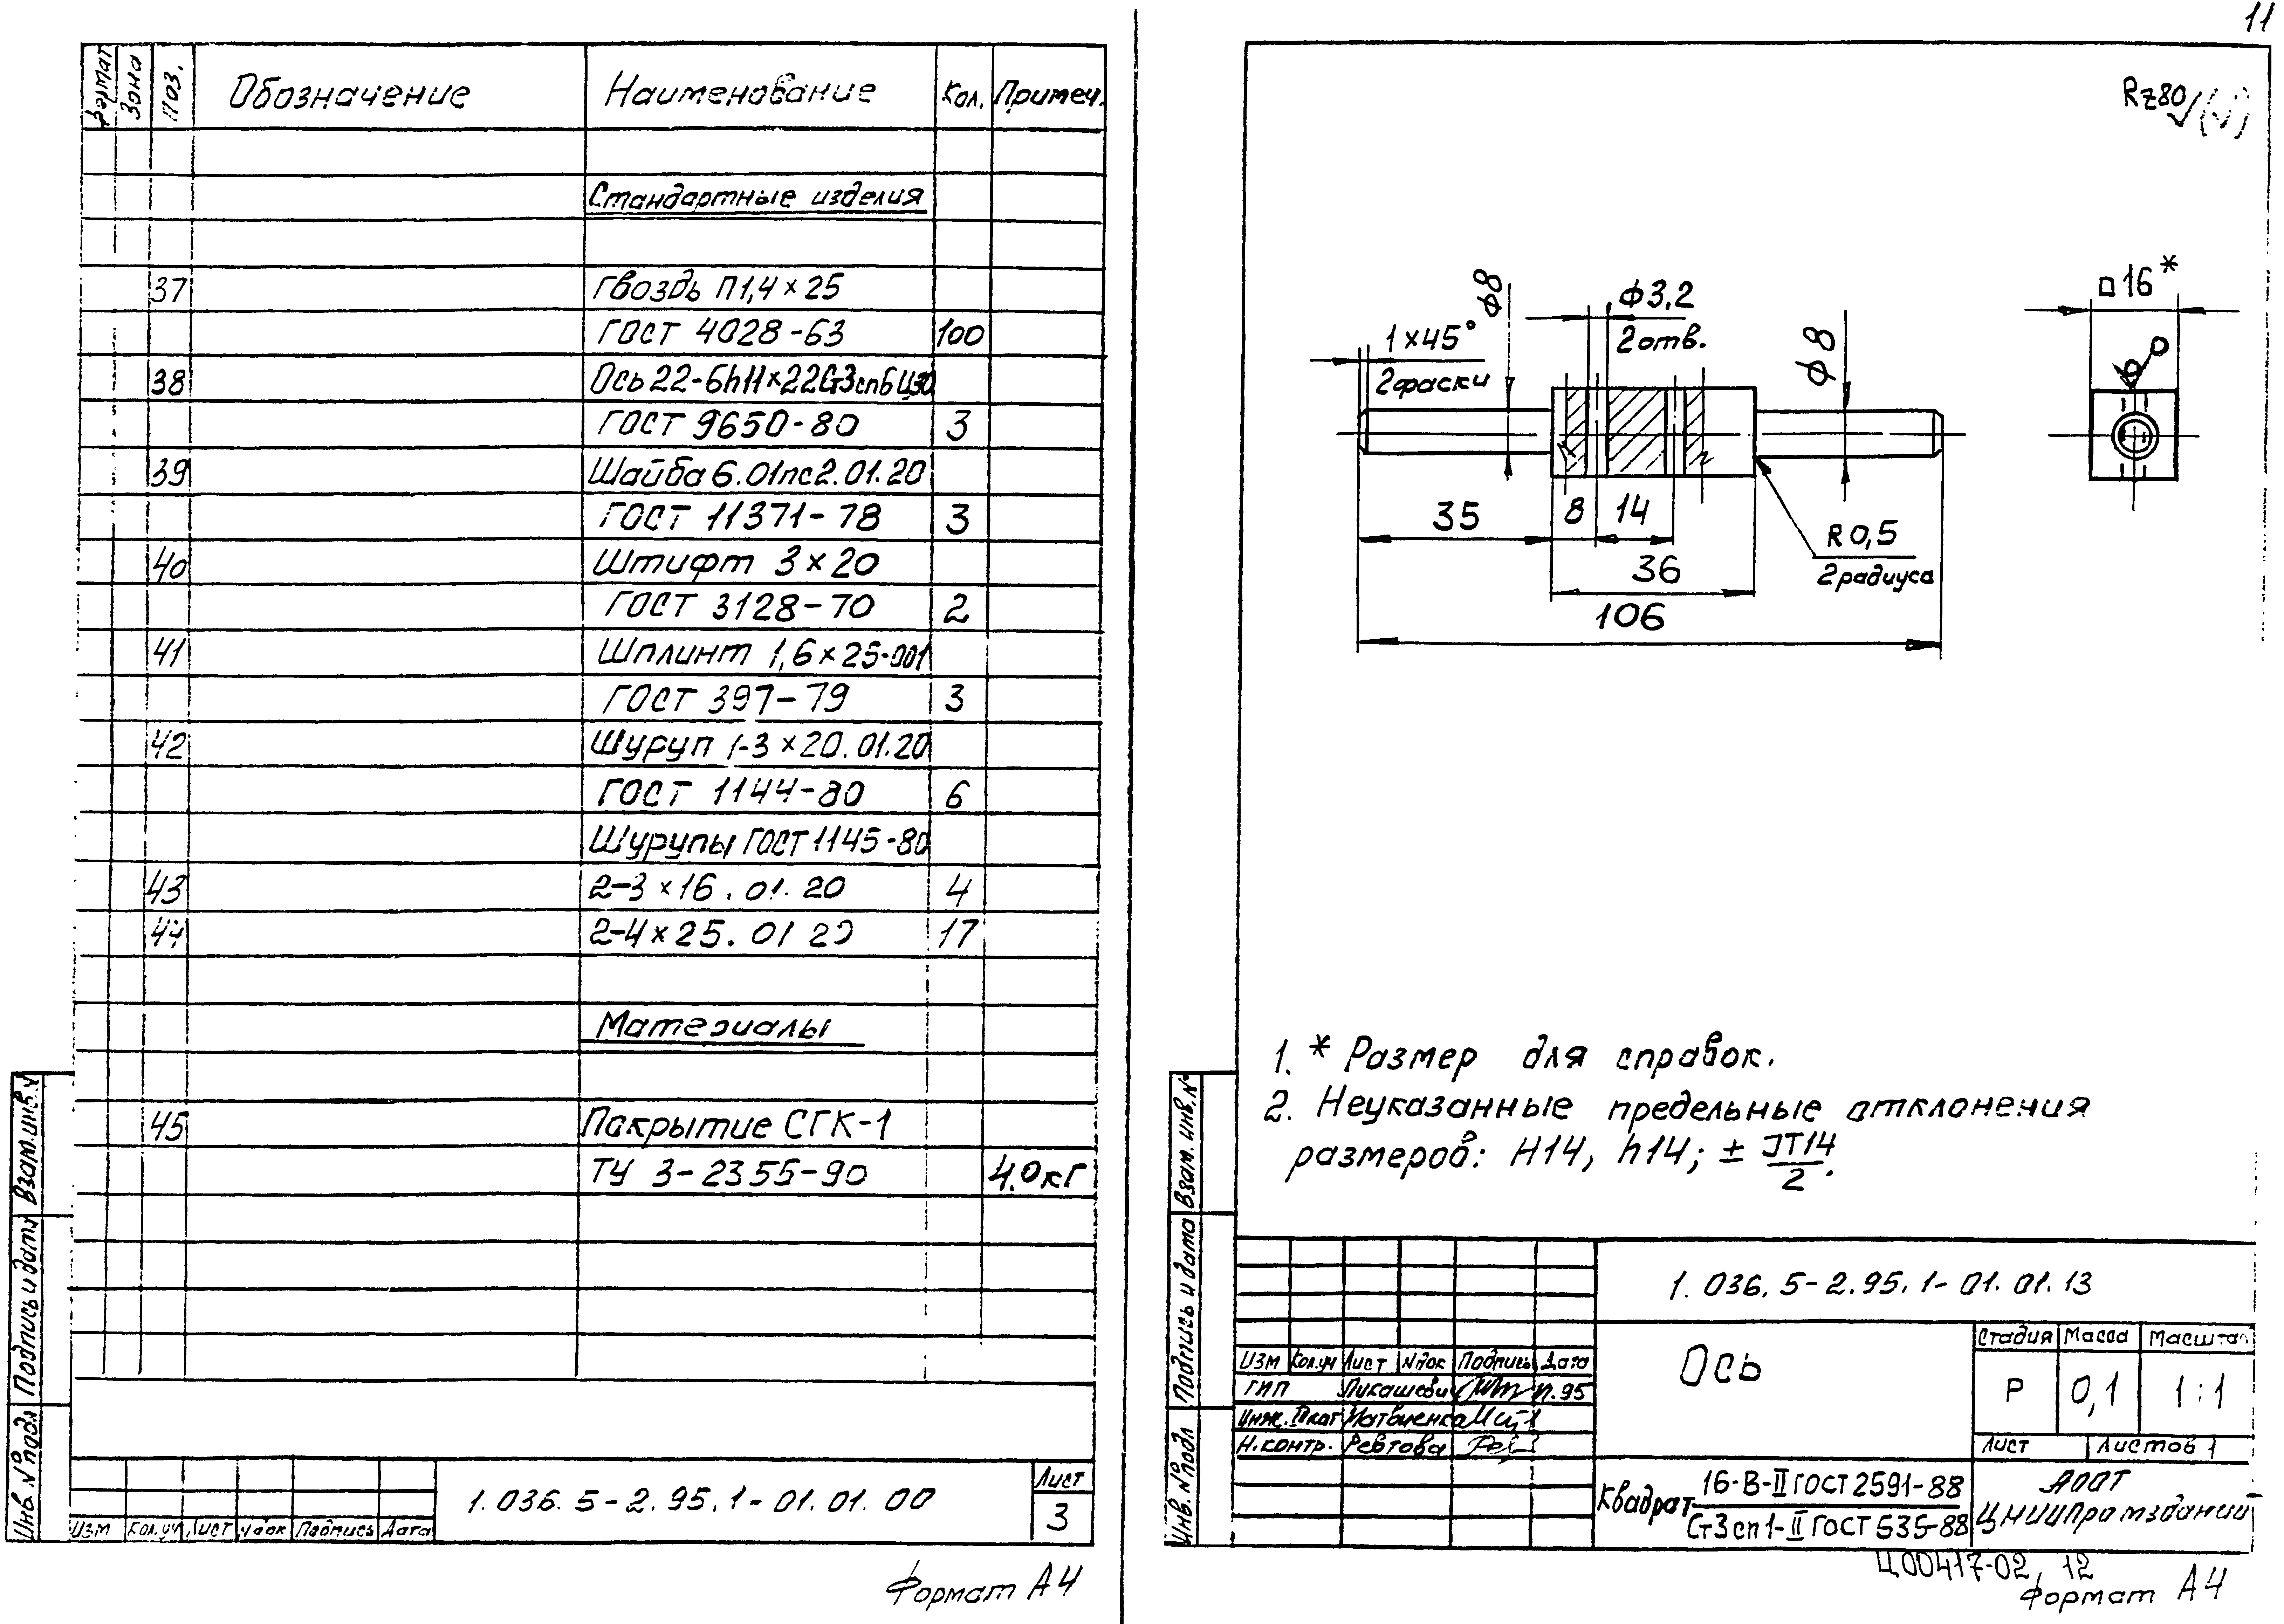 11
Формат Зона Поз. Обозначение Наименование Кол. Примеч.
Стандартные изделия
37 Гвоздь П1,4×25
ГОСТ 4028-63 100
38 Ось 22-6h11×22Ст3сп6Ц30
ГОСТ 9650-80 3
39 Шайба 6.01пс2.01.20
ГОСТ 11371-78 3
40 Штифт 3×20
ГОСТ 3128-70 2
41 Шплинт 1,6×25-001
ГОСТ 397-79 3
42 Шуруп 1-3×20.01.20
ГОСТ 1144-80 6
Шурупы ГОСТ 1145-80
43 2-3×16.01.20 4
44 2-4×25.01 20 17
Материалы
45 Покрытие СГК-1
ТУ 3-2355-90 4.0кг
Взам.инв.N
Подпись и дата
Инв. №подл
Изм Кол.уч Лист Nдок Подпись Дата
1.036.5-2.95.1-01.01.00
Лист
3
Формат А4
Rz80 (√)
1×45°
2фаски
ϕ8
ϕ3,2
2отв.
ϕ8
□16*
35
8
14
36
106
R0,5
2радиуса
1. * Размер для справок.
2. Неуказанные предельные отклонения
размеров: H14, h14; ± JT14/2.
Взам. инв.N°
Подпись и дата
Инв. №подл
1.036.5-2.95.1-01.01.13
Изм Кол.уч Лист Nдок Подпись Дата
ГИП Лукашевич 11.95
Инж. II кат Матвиенко
Н.контр. Ревтова
Ось
Стадия Масса Масштаб
Р 0,1 1:1
Лист Листов 1
Квадрат 16-В-II ГОСТ 2591-88
Ст3сп1-II ГОСТ 535-88
АООТ
ЦНИИПромзданий
Ц00417-02, 12
Формат А4